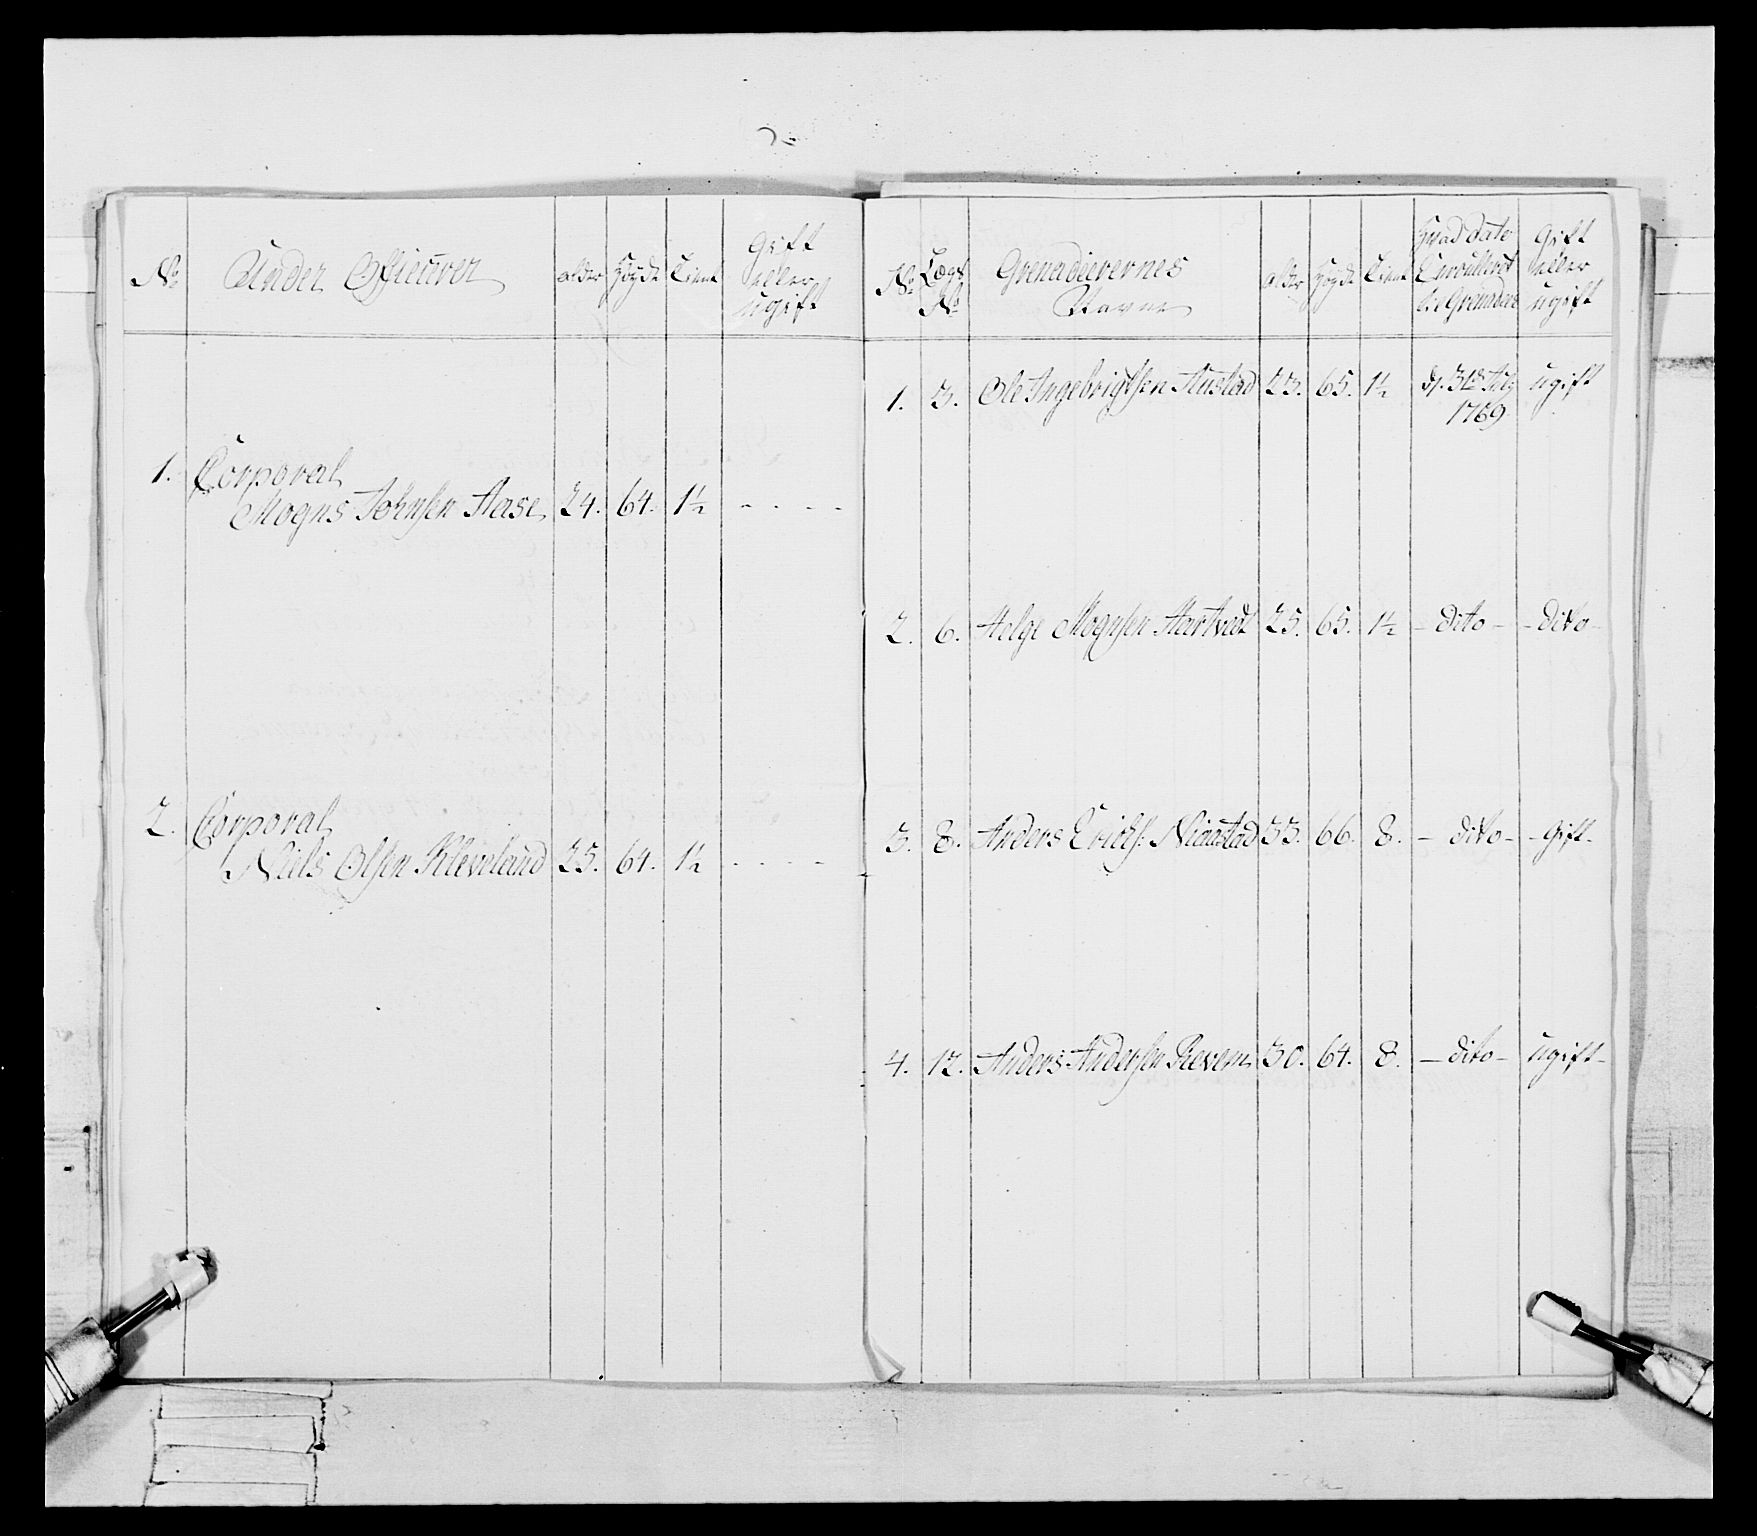 No
Under Officierer
alder
Høyde
Tient
Gift
eller
ugift
1.
Corporal
Mogns Johnsen Aase 24. 64. 1½ - - - -
2.
Corporal
Niels Olsen Kleveland 25. 64. 1½ - - - -
No
Lægs
No
Grenadierernes
Navne
alder
Høyde
Tient
Hvad date
Enroulleret
Gift
eller
ugift
1. 3. Ole Ingebrigtsen Austad 23. 65. 1½ ugift
1769
2. 6. Helge Mognsen Hartvedt 25. 65. 1½ - dito - - dito -
3. 8. Anders Erichs: 33. 66. 8. - dito - - Gift -
4. 12. Anders Andersen Revem 30. 64. 8. - dito - ugift -